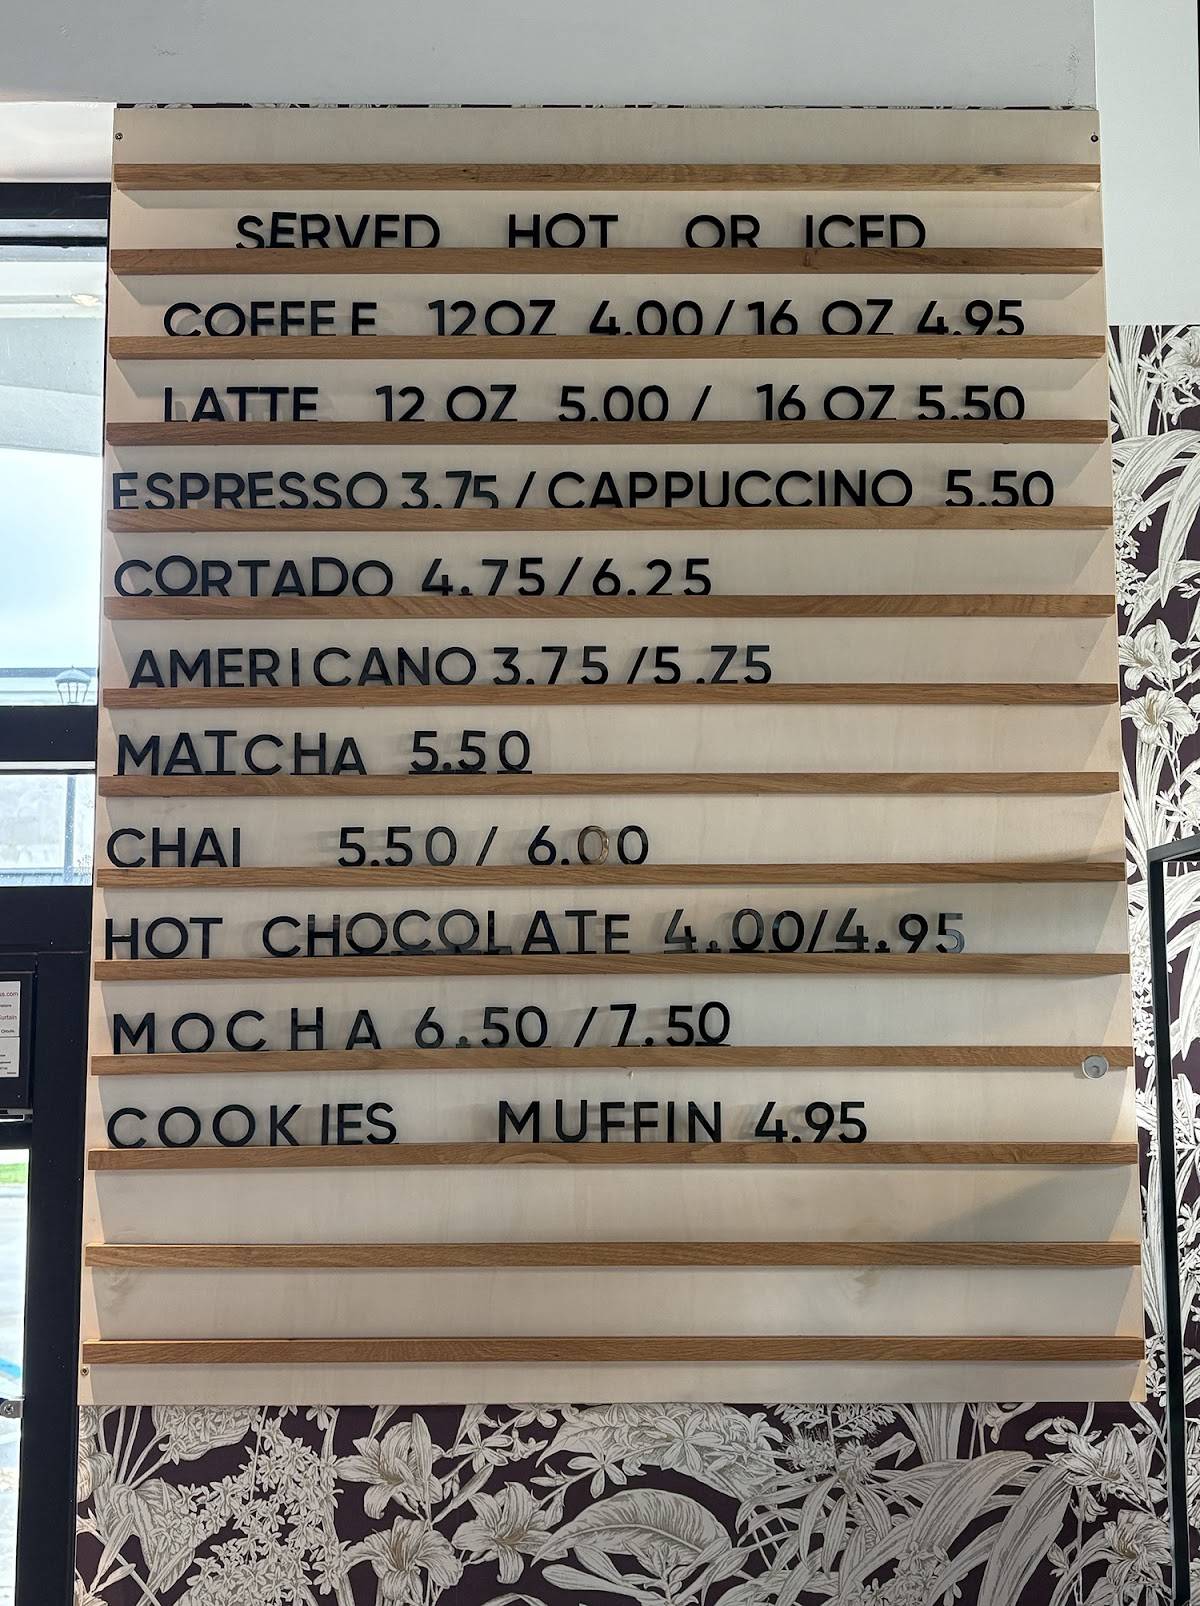 SERVED HOT OR ICED
COFFEE 12OZ 4.00/16 OZ 4.95
LATTE 12 OZ 5.00 / 16 OZ 5.50
ESPRESSO 3.75 / CAPPUCCINO 5.50
CORTADO 4.75/6.25
AMERICANO 3.75 /5.Z5
MATCHA 5.50
CHAI 5.50/ 6.00
HOT CHOCOLATE 4.00/4.95
MOCHA 6.50 /7.50
COOKIES MUFFIN 4.95